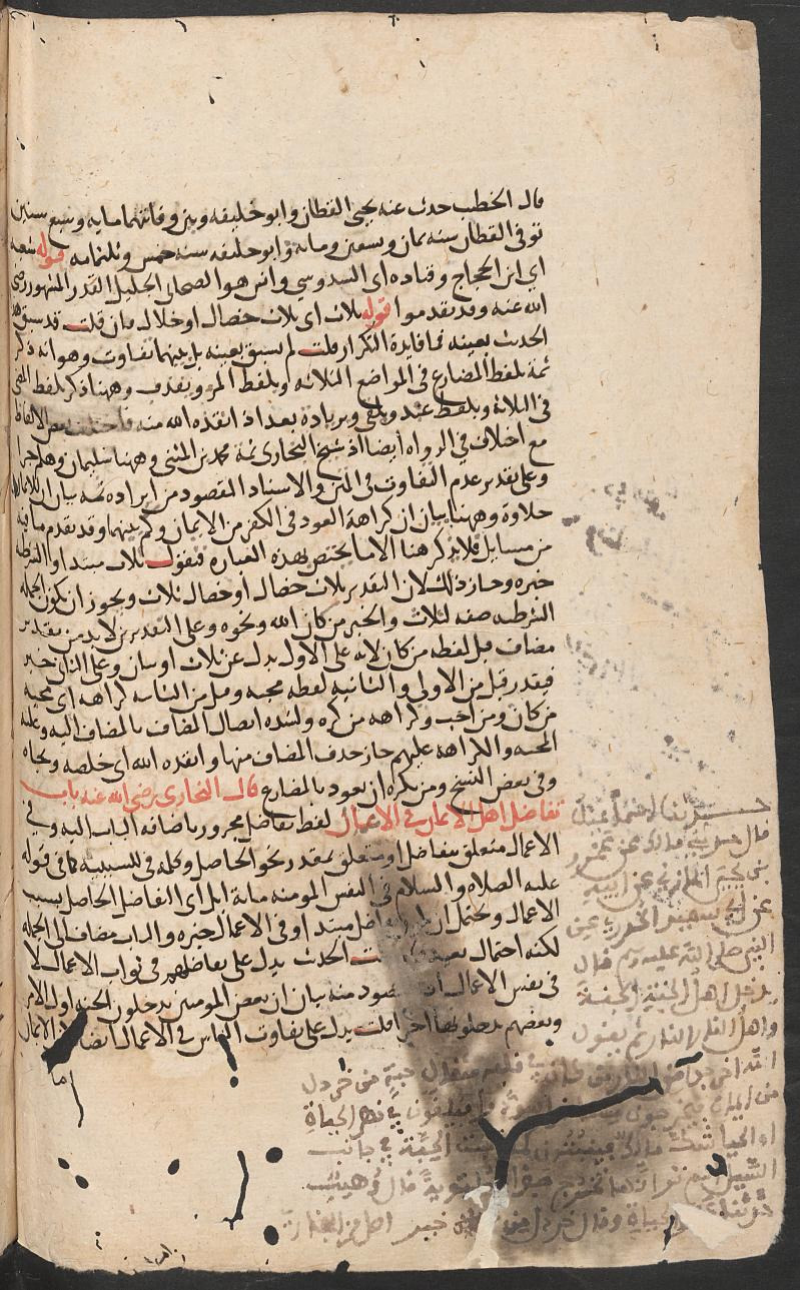 قال الخطيب حدث عنه يحيى القطان وابو خليفه وبين وفاتيهما مايه وسبع سنين
توفى القطان سنه ثمان وتسعين ومايه وابو خليفه سنه خمس وثلثمايه قوله شعبه
اي ابن الحجاج وقتاده اى السدوسي وانس هو الصحابى الجليل القدر المشهور رضى
الله عنه وقد تقدموا قوله ثلاث اى ثلاث خصال او خلال فان قلت قد سبق هذا
الحديث بعينه فما فايدة التكرار قلت لم يسبق بعينه بل بينهما تفاوت وهو انه ذكر
ثمة بلفظ المضارع فى المواضع الثلاثه وبلفظ المرء ويقذف وههنا ذكر بلفظ الماضى
فى الثلاثة وبلفظ عبد ويلقى وبزيادة بعد اذ انقذه الله منه فاختلف بعض الالفاظ
مع اختلاف في الرواه ايضا اذ شيخ البخارى ثمة محمد بن المثنى وههنا سليمان وهلم جرا
وعلى تقدير عدم التفاوت فى المتن والاسناد المقصود من ايراده ثمه بيان ان للايمان
حلاوة وههنا بيان ان كراهة العود فى الكفر من الايمان وكم بينهما وقد تقدم ما فيه
من مسايل فلا يذكر هنا الا ما يختص بهذه العباره فنقول ثلاث مبتدا والشرطيه
خبره وجاز ذلك لان التقدير ثلاث خصال او خصال ثلاث ويجوز ان يكون الجمله
الشرطيه صفه لثلاث والخبر من كان الله ونحوه وعلى التقديرين لا بد من تقدير
مضاف قبل لفظه من كان لانه على الاول بدل عن ثلاث او بيان وعلى الثانى خبر
فيقدر قبل من الاولى والثانيه لفظه محبه وقبل من الثالثه كراهه اى محبه
من كان ومن احب وكراهه من كره ولشده اتصال المضاف بالمضاف اليه وغلبه
المحبه والكراهه عليهم جاز حذف المضاف منها وانقذه الله اى خلصه ونجاه
وفى بعض النسخ ومن يكره ان يعود بالمضارع قال البخارى رضى الله عنه باب
تفاضل اهل الايمان فى الاعمال لفظ تفاضل مجرور باضافه الباب اليه وفي
الاعمال متعلق بتفاضل او متعلق بمقدر نحو الحاصل وكلمه فى للسببيه كما فى قوله
عليه الصلاه والسلام فى النفس المومنه ماية ابل اى التفاضل الحاصل بسبب
الاعمال ويحتمل ان يكون تفاضل مبتدا وفى الاعمال خبره والباب مضاف الى الجمله
لكنه احتمال بعيد قلت الحديث يدل على تفاضلهم فى ثواب الاعمال لا
فى نفس الاعمال المقصود منه بيان ان بعض المومنين يدخلون الجنه اول الامر
وبعضهم يدخلونها اخرا قلت يدل على تفاوت الناس فى الاعمال ايضا الايمان
اما
حدثنا اسمعيل
قال حدثني مالك عن عمرو
بن يحيى المازني عن ابيه
عن ابي سعيد الخدري عن
النبي صلى الله عليه وسلم قال
يدخل اهل الجنة الجنة
واهل النار النار ثم يقول
الله اخرجوا من كان في قلبه مثقال حبة من خردل
من ايمان فيخرجون فيلقون في نهر الحياة
او الحيا شك مالك فينبتون كما تنبت الحبة في جانب
السيل الم تر انها تخرج صفراء ملتوية قال وهيب
حدثنا عمرو الحياة وقال خردل من خير